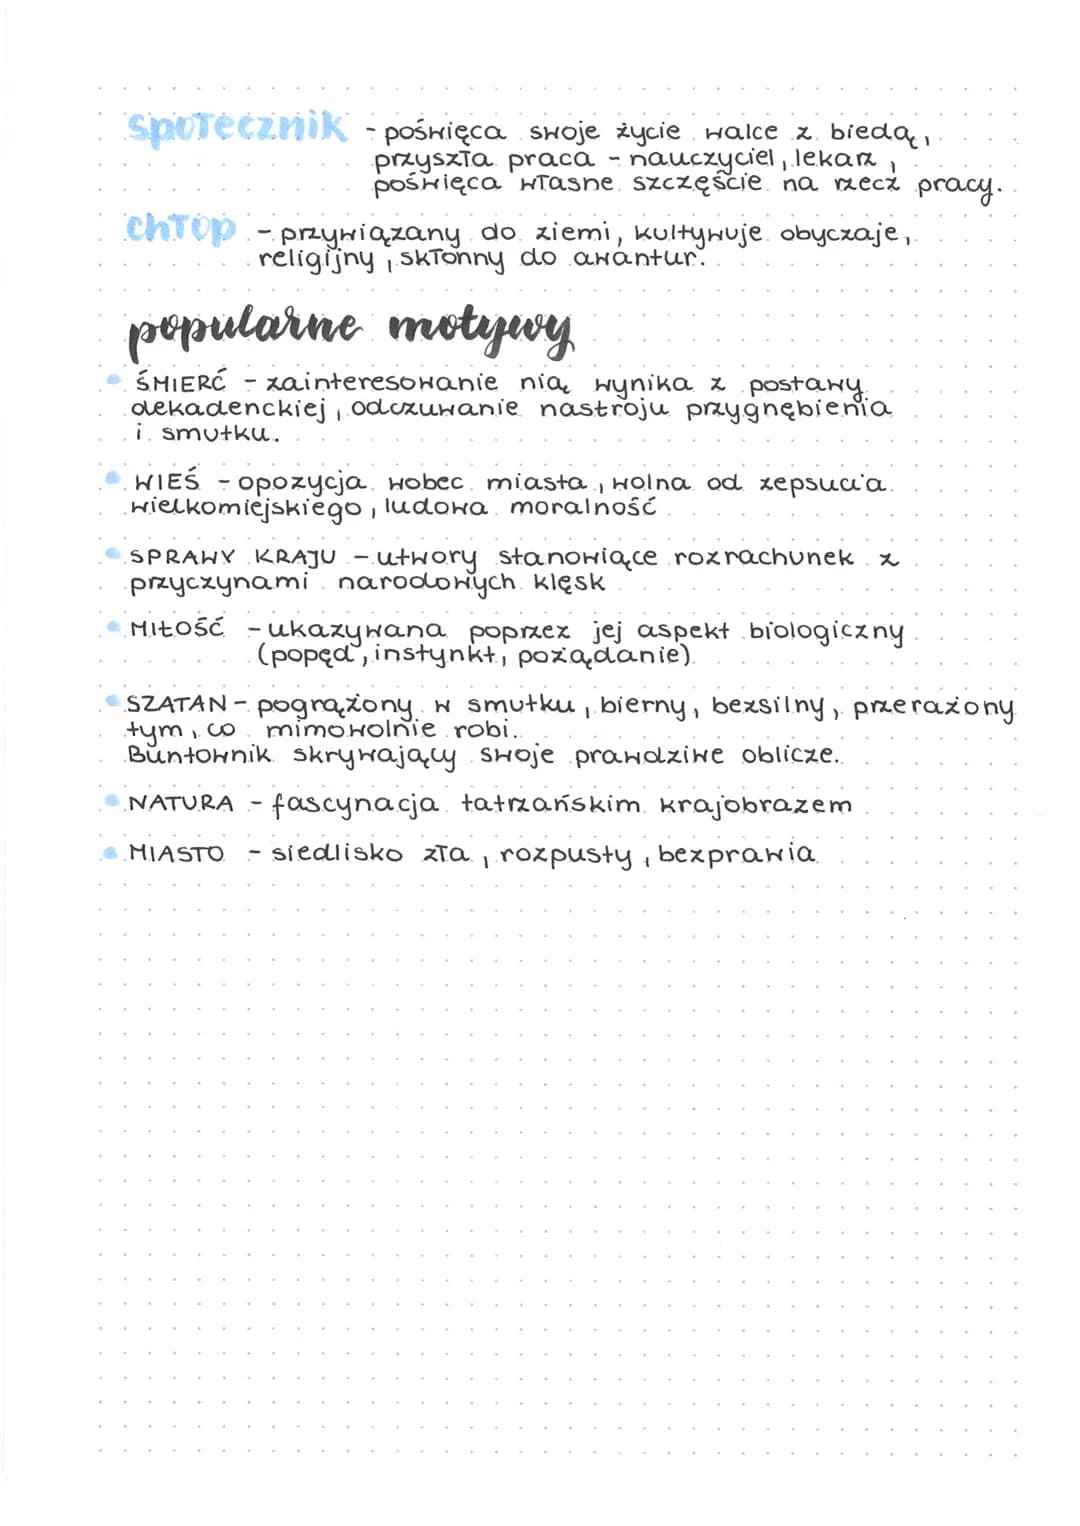 społecznik - poświęca swoje życie walce z biedą,
przyszła praca - nauczyciel, lekarz,
poświęca własne szczęście na rzecz pracy.
chłop - przywiązany do ziemi, kultywuje obyczaje,
religijny, skłonny do awantur.
popularne motywy
• ŚMIERĆ - zainteresowanie nią wynika z postawy
dekadenckiej, odczuwanie nastroju przygnębienia
i smutku.
• WIEŚ - opozycja wobec miasta, wolna od zepsucia
wielkomiejskiego, ludowa moralność
• SPRAWY KRAJU - utwory stanowiące rozrachunek z
przyczynami narodowych klęsk
• MIŁOŚĆ - ukazywana poprzez jej aspekt biologiczny
(popęd, instynkt, pożądanie)
• SZATAN - pogrążony w smutku, bierny, bezsilny, przerażony
tym, co mimowolnie robi.
Buntownik skrywający swoje prawdziwe oblicze.
• NATURA - fascynacja tatrzańskim krajobrazem
• MIASTO - siedlisko zła, rozpusty, bezprawia